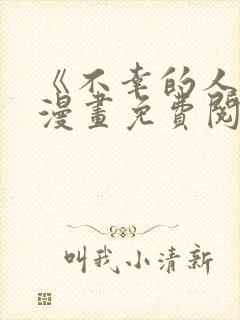 《不幸的人
漫畫免費閱
叫我小清新